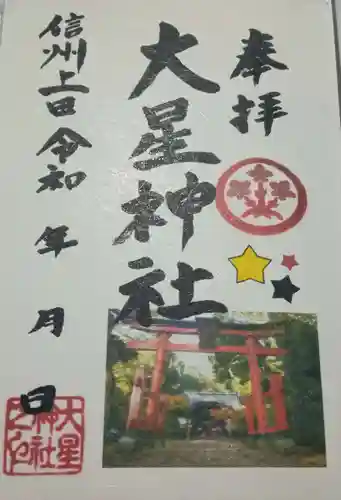 奉拝
大星神社
信州上田令和 年 月 日
大星
神社
之印